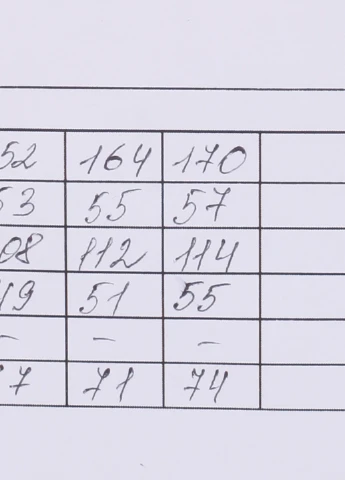 52 164 170
53 55 57
08 112 114
49 51 55
- - -
7 71 74